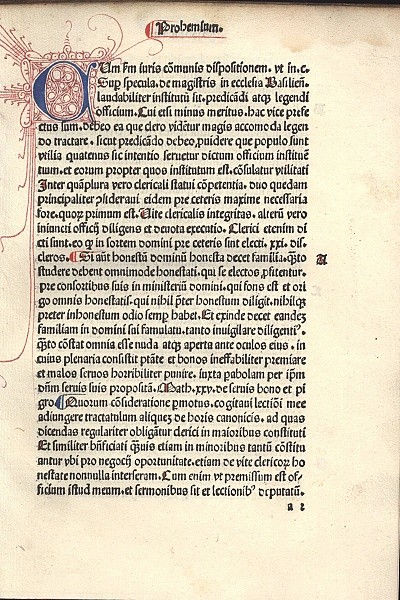 Prohemium.
CUm s̄m iuris cōmunis dispositionem. vt in.c.
Sup̱ specula. de magistris in ecclesia Basilieñ.
laudabiliter institutū sit. predicādi atqꝫ legendi
officium. Cui etsi minus meritus. hac vice prefe
ctus sum. debeo ea que clero vident̄ magis accomoda legen
do tractare. sicut predicādo debeo, puidere que populo sunt
vtilia quatenus sic intentio seruetur dictum officium institue̅
tium. et eorum propter quos institutum est. cōsulatur vtilitati
Inter quāplura vero clericali statui cōpetentia. duo quedam
principaliter p̄siderauī eidem pre ceteris maxime necessaria
fore. quoꝝ primum est. Uite clericalis integritas. alterū vero
iniuncti officij diligens et deuota executio. Clerici etenim di
cti sunt. eo ꝙ in sortem domini pre ceteris sint electi. xxi. dis.
cleros. Si aūt honestū dominū honesta decet familia. q̄ꝫto
studere debent omnimode honestati. qui se electos, p̱fitentur.
pre consortibus suis in ministeriū domini. qui fons est et ori
go omnis honestatis. qui nihil p̄ter honestum diligit. nihilqꝫ
preter inhonestum odio semꝑ habet. Et exinde decet eandeꝫ
familiam in domini sui famulatu. tanto inuigilare diligentiꝰ.
q̄ꝫto cōstat omnia esse nuda atqꝫ aperta ante oculos eius. in
cuius plenaria consistit ptāte et bonos ineffabiliter premiare
et malos seruos horribiliter punire. iuxta pabolam per ip̄m
dn̄m seruis suis propositā. Math. xxv. de seruis bono et pi
gro Quorum cōsideratione ꝑmotus. cogitaui lectiōi mee
adiungere tractatulum aliqueꝫ de horis canonicis. ad quas
dicendas regulariter obligāt̄ur clerici in maioribus constituti
Et similiter bn̄ficiati q̄ꝫuis etiam in minoribus tantū cōstitu
antur vbi pro negocij oportunitate. etiam de vite clericoꝝ ho
nestate nonnulla inserram. Cum enim vt premissum est of-
ficium istud meum. et sermonibus sit et lectionibꝰ deputatū.
A
a 2